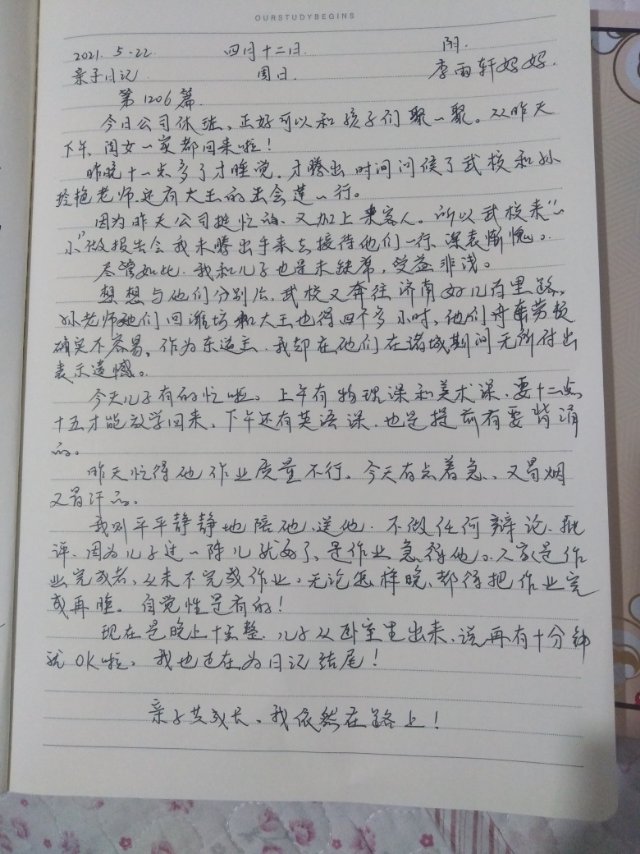 OURSTUDYBEGINS
2021. 5.22 四月十二日. 阴.
亲子日记 周日. 李雨轩妈妈.
第1206篇.
今日公司休班、正好可以和孩子们聚一聚。又昨天
下午、闺女一家都回来啦！
昨晚十一点多了才睡觉. 才腾出时间问候了武校和孙
艳老师. 还有大王的去会莲一行。
因为昨天公司挺忙. 又加上来客人。所以武校来“
小”做报告会我未腾出手来去接待他们一行、深表惭愧。
尽管如此. 我和儿子也是未缺席, 受益非浅。
想想与他们分别后、武校又奔往济南好几百里路,
孙老师她们回潍坊和大王也得四个多小时, 他们舟车劳顿
确实不容易, 作为东道主. 我却在他们在诸城期间无所付出
表示遗憾。
今天儿子有的忙啦。上午有物理课和美术课、要十二点
十五才能放学回来, 下午还有英语课. 也是提前有要背诵
的。
昨天忙得他作业质量不行、今天有点着急、又冒烟
又冒汗的.
我则平平静静地陪他. 送他. 不做任何辩论. 批
评. 因为儿子过一阵儿就好了、是作业急得他。人家是作
业完成者, 从未不完成作业。无论怎样晚, 都得把作业完
成再睡。自觉性是有的！
现在是晚上十点整. 儿子从卧室里出来. 说再有十分钟
就OK啦. 我也正在为日记结尾！
亲子共成长、我依然在路上！